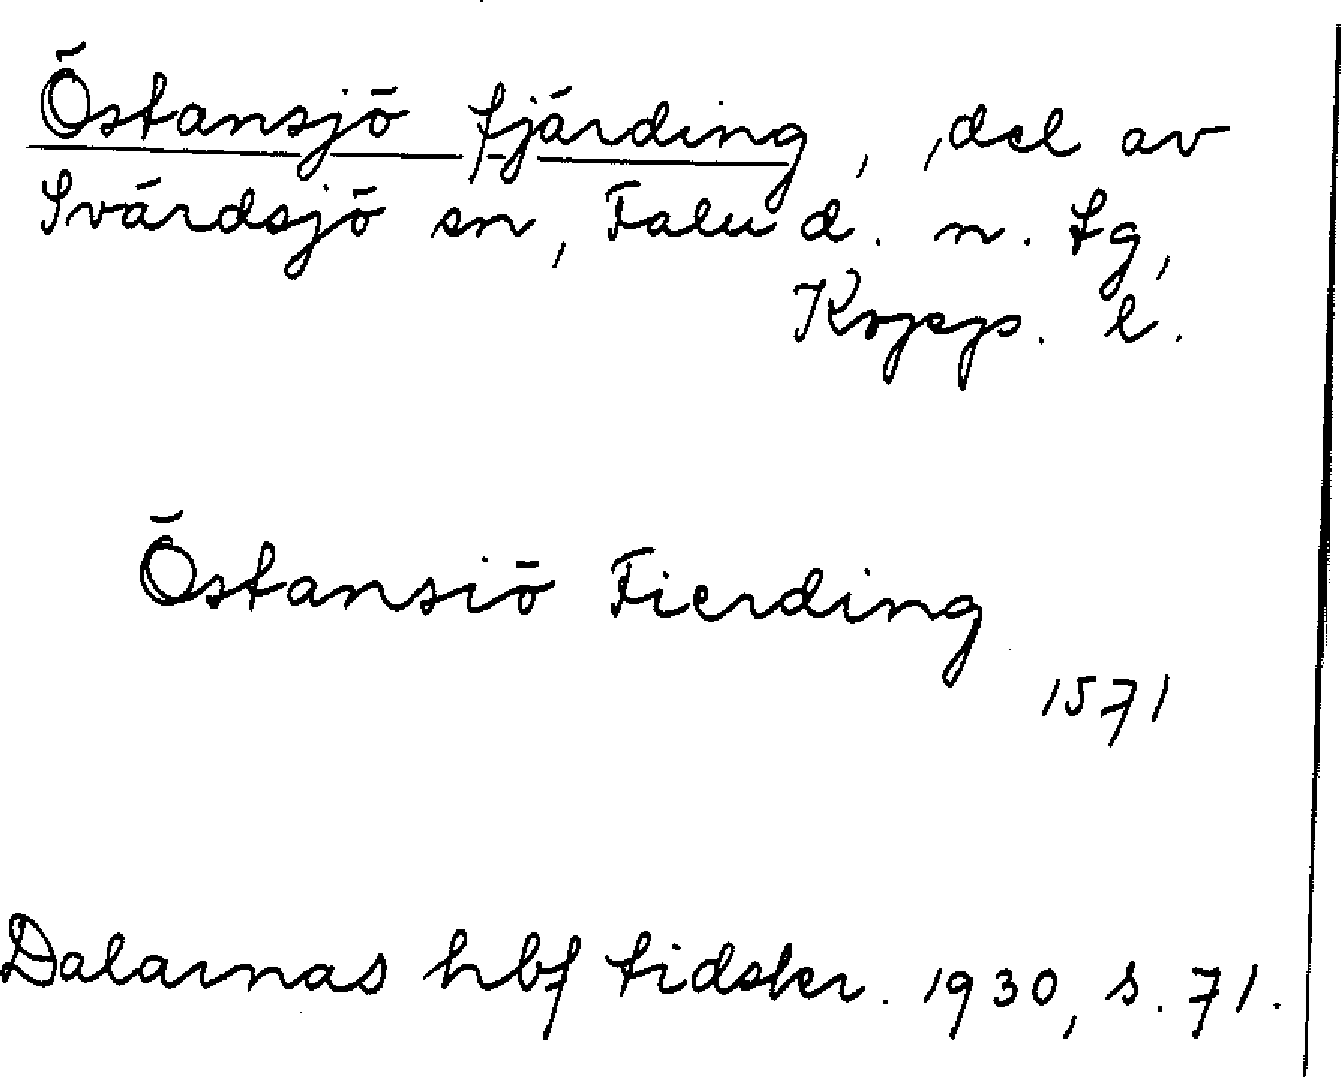 Östansjö fjärding, del av
Svärdsjö sn, Falu d. n. tg,
Kopp. l.
Östansiö Fierding
1571
Dalarnas hbf tidskr. 1930, s. 71.